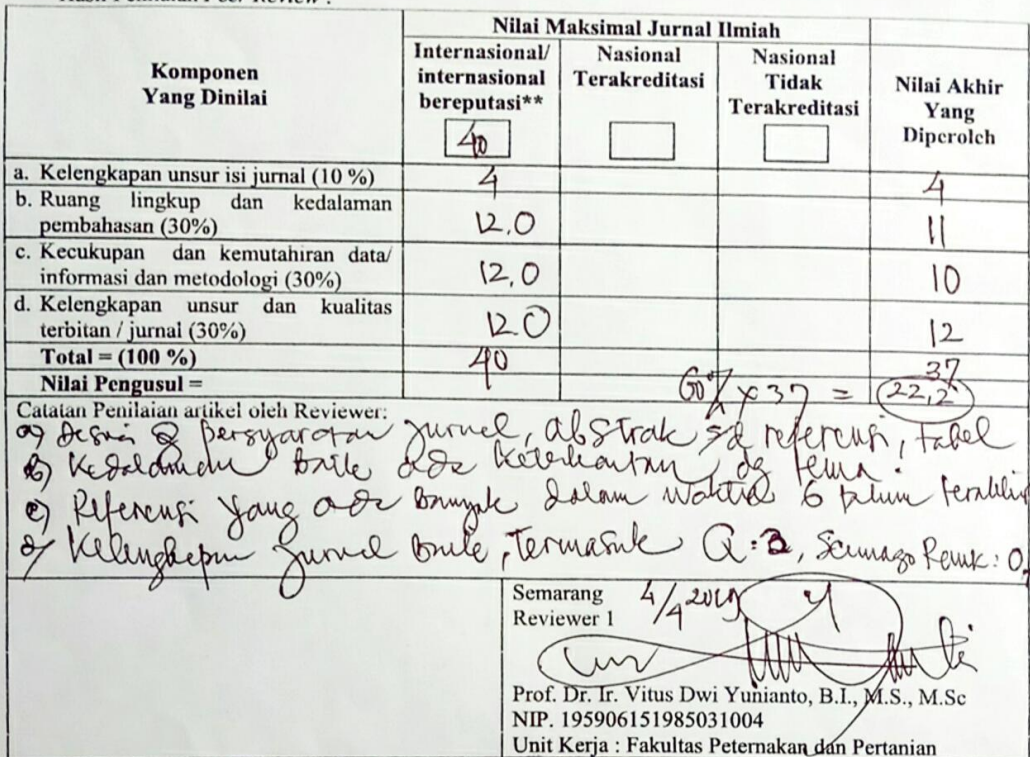 Nilai Maksimal Jurnal Ilmiah
Komponen
Yang Dinilai
Internasional/
internasional
bereputasi**
40
Nasional
Terakreditasi
Nasional
Tidak
Terakreditasi
Nilai Akhir
Yang
Diperoleh
a. Kelengkapan unsur isi jurnal (10 %) 4 4
b. Ruang lingkup dan kedalaman
pembahasan (30%) 12.0 11
c. Kecukupan dan kemutahiran data/
informasi dan metodologi (30%) 12.0 10
d. Kelengkapan unsur dan kualitas
terbitan / jurnal (30%) 12.0 12
Total = (100 %) 40 37
Nilai Pengusul = 60% x 37 = 22,2
Catatan Penilaian artikel oleh Reviewer:
a) persyaratan jurnal, abstrak sd referensi, tabel
b) Kedalaman baik ada keterkaitan dg tema.
c) Referensi yang ada banyak dalam waktu 6 tahun
d) Kelengkapan jurnal baik, termasuk Q:, Scimago Rank: 0,
Semarang 4/4 2019
Reviewer 1
Prof. Dr. Ir. Vitus Dwi Yunianto, B.I., M.S., M.Sc
NIP. 195906151985031004
Unit Kerja : Fakultas Peternakan dan Pertanian